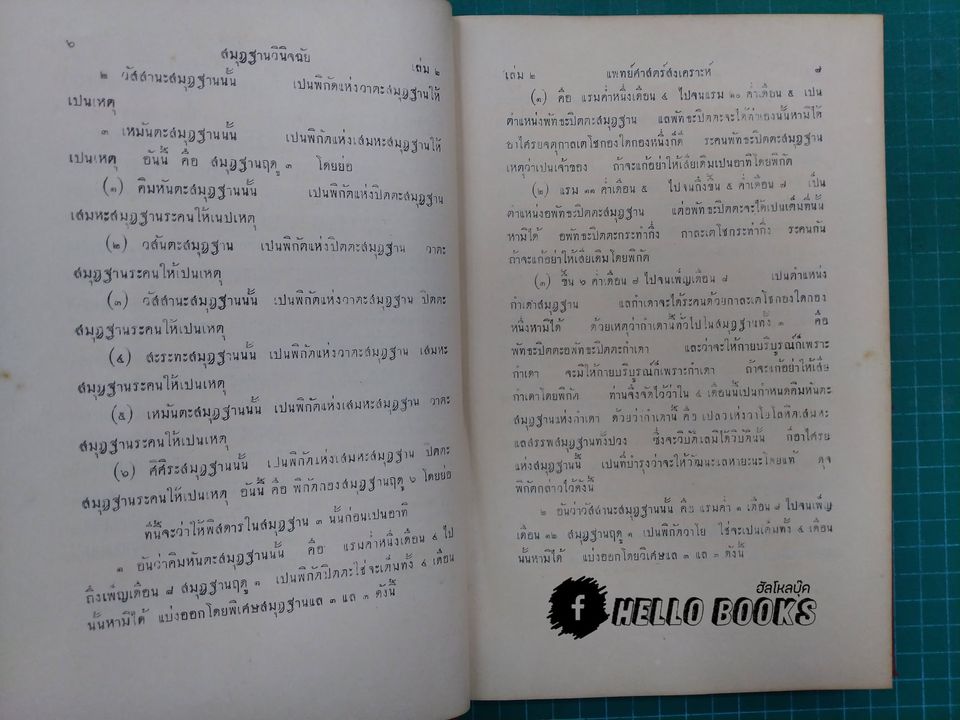 ๖
สมุฏฐานวินิจฉัย
เล่ม ๒
๒ วัสสานะสมุฏฐานนั้น เปนพิกัดแห่งวาตะสมุฏฐานให้
เปนเหตุ
๓ เหมันตะสมุฏฐานนั้น เปนพิกัดแห่งเสมหะสมุฏฐานให้
เปนเหตุ อันนี้ คือ สมุฏฐานฤดู ๓ โดยย่อ
(๑) คิมหันตะสมุฏฐานนั้น เปนพิกัดแห่งปิตตะสมุฏฐาน
เสมหะสมุฏฐานระคนให้เนปเหตุ
(๒) วสันตะสมุฏฐาน เปนพิกัดแห่งปิตตะสมุฏฐาน วาตะ
สมุฏฐานระคนให้เปนเหตุ
(๓) วัสสานะสมุฏฐานนั้น เปนพิกัดแห่งวาตะสมุฏฐาน ปิตตะ
สมุฏฐานระคนให้เปนเหตุ
(๔) สะระทะสมุฏฐานนั้น เปนพิกัดแห่งวาตะสมุฏฐาน เสมหะ
สมุฏฐานระคนให้เปนเหตุ
(๕) เหมันตะสมุฏฐานนั้น เปนพิกัดแห่งเสมหะสมุฏฐาน วาตะ
สมุฏฐานระคนให้เปนเหตุ
(๖) ศิศิระสมุฏฐานนั้น เปนพิกัดแห่งเสมหะสมุฏฐาน ปิตตะ
สมุฏฐานระคนให้เปนเหตุ อันนี้ คือ พิกัดกองสมุฏฐานฤดู ๖ โดยย่อ
ทีนี้จะว่าให้พิสดารในสมุฏฐาน ๓ นั้นก่อนเปนอาทิ
๑ อันว่าคิมหันตะสมุฏฐานนั้น คือ แรมค่ำหนึ่งเดือน ๔ ไป
ถึงเพ็ญเดือน ๘ สมุฏฐานฤดู ๑ เปนพิกัดปิตตะใช่จะเต็มทั้ง ๔ เดือน
นั้นหามิได้ แบ่งออกโดยพิเศษสมุฏฐานแล ๓ แล ๓ ดังนี้
เล่ม ๒
แพทย์ศาสตร์สงเคราะห์
๗
(๑) คือ แรมค่ำหนึ่งเดือน ๔ ไปจนแรม ๑๐ ค่ำเดือน ๕ เปน
ตำแหน่งพัทธะปิตตะสมุฏฐาน แลพัทธะปิตตะจะได้ทำเองนั้นหามิได้
อาไศรยจตุกาลเตโชกองใดกองหนึ่งก็ดี ระคนพัทธะปิตตะสมุฏฐาน
เหตุว่าเปนเจ้าของ ถ้าจะแก้อย่าให้เสียเดิมเปนอาทิโดยพิกัด
(๒) แรม ๑๑ ค่ำเดือน ๕ ไปจนถึงขึ้น ๕ ค่ำเดือน ๗ เปน
ตำแหน่งอพัทธะปิตตะสมุฏฐาน แต่อพัทธะปิตตะจะได้เปนเต็มที่นั้น
หามิได้ อพัทธะปิตตะกระทำกึ่ง กาละเตโชกระทำกึ่ง ระคนกัน
ถ้าจะแก้อย่าให้เสียเดิมโดยพิกัด
(๓) ขึ้น ๖ ค่ำเดือน ๗ ไปจนเพ็ญเดือน ๘ เปนตำแหน่ง
กำเดาสมุฏฐาน แลกำเดาจะได้ระคนด้วยกาละเตโชกองใดกอง
หนึ่งหามิได้ ด้วยเหตุว่ากำเดานี้ทั่วไปในสมุฏฐานทั้ง ๓ คือ
พัทธะปิตตะอพัทธะปิตตะกำเดา และว่าจะให้กายบริบูรณ์ก็เพราะ
กำเดา จะมิให้กายบริบูรณ์ก็เพราะกำเดา ถ้าจะแก้อย่าให้เสีย
กำเดาโดยพิกัด ท่านจึงจัดไว้ว่าใน ๔ เดือนนี้เปนกำหนดคิมหันตะ
สมุฏฐานแห่งกำเดา ด้วยว่ากำเดานี้ คือ เปลวแห่งวาโยโลหิตเสมหะ
แลสรรพสมุฏฐานทั้งปวง ซึ่งจะวิบัติแลมิได้วิบัตินั้น ก็อาไศรย
แห่งสมุฏฐานนี้ เปนที่บำรุงว่าจะให้วัฒนะแลหายะนะโดยแท้ ดุจ
พิกัดกล่าวไว้ดังนี้
๒ อันว่าวัสสานะสมุฏฐานนั้น คือ แรมค่ำ ๑ เดือน ๘ ไปจนเพ็ญ
เดือน ๑๒ สมุฏฐานฤดู ๑ เปนพิกัดวาโย ใช่จะเปนเต็มทั้ง ๔ เดือน
นั้นหามิได้ แบ่งออกโดยวิเศษแล ๓ แล ๓ ดังนี้
ฮัลโหลบุ๊ค
f HELLO BOOKS